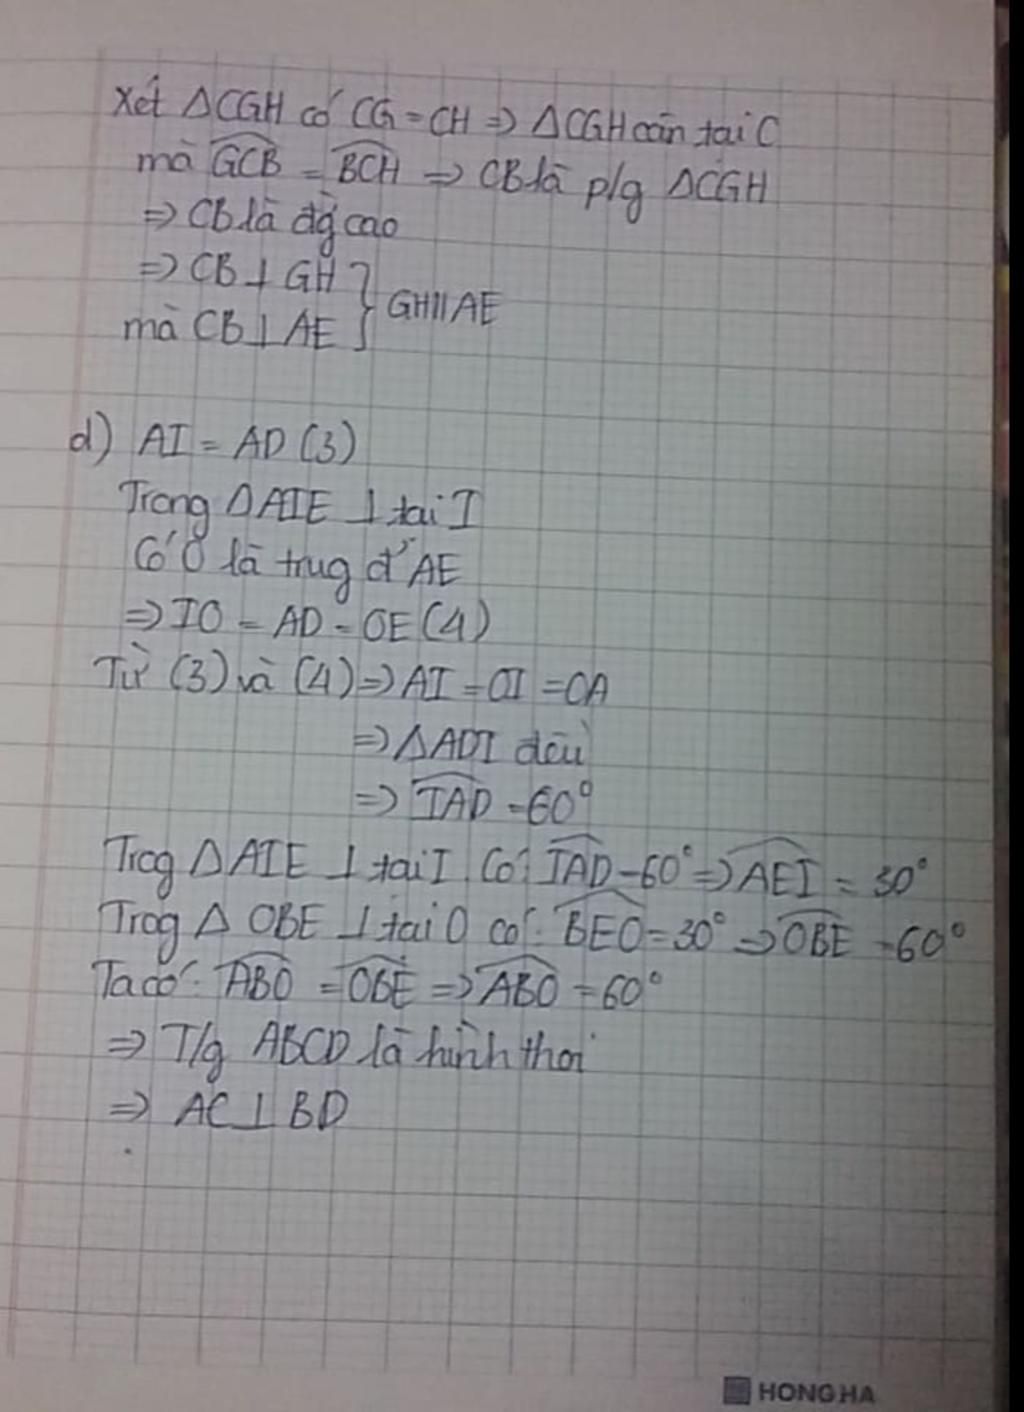 Xét ΔCGH có CG = CH ⇒ ΔCGH cân tại C
mà GCB = BCH ⇒ CB là p/g ΔCGH
⇒ CB là đg cao
⇒ CB ⊥ GH
} GH // AE
mà CB ⊥ AE
d) AI = AO (3)
Trong ΔAIE ⊥ tại I
Có O là trug đ' AE
⇒ IO = AO = OE (4)
Từ (3) và (4) ⇒ AI = OI = OA
⇒ ΔAOI đều
⇒ IAO = 60°
Trog ΔAIE ⊥ tại I có: IAO = 60° ⇒ AEI = 30°
Trog Δ OBE ⊥ tại O có: BEO = 30° ⇒ OBE = 60°
Ta có: ABO = OBE ⇒ ABO = 60°
⇒ T/g ABCD là hình thoi
⇒ AC ⊥ BD
HONG HA